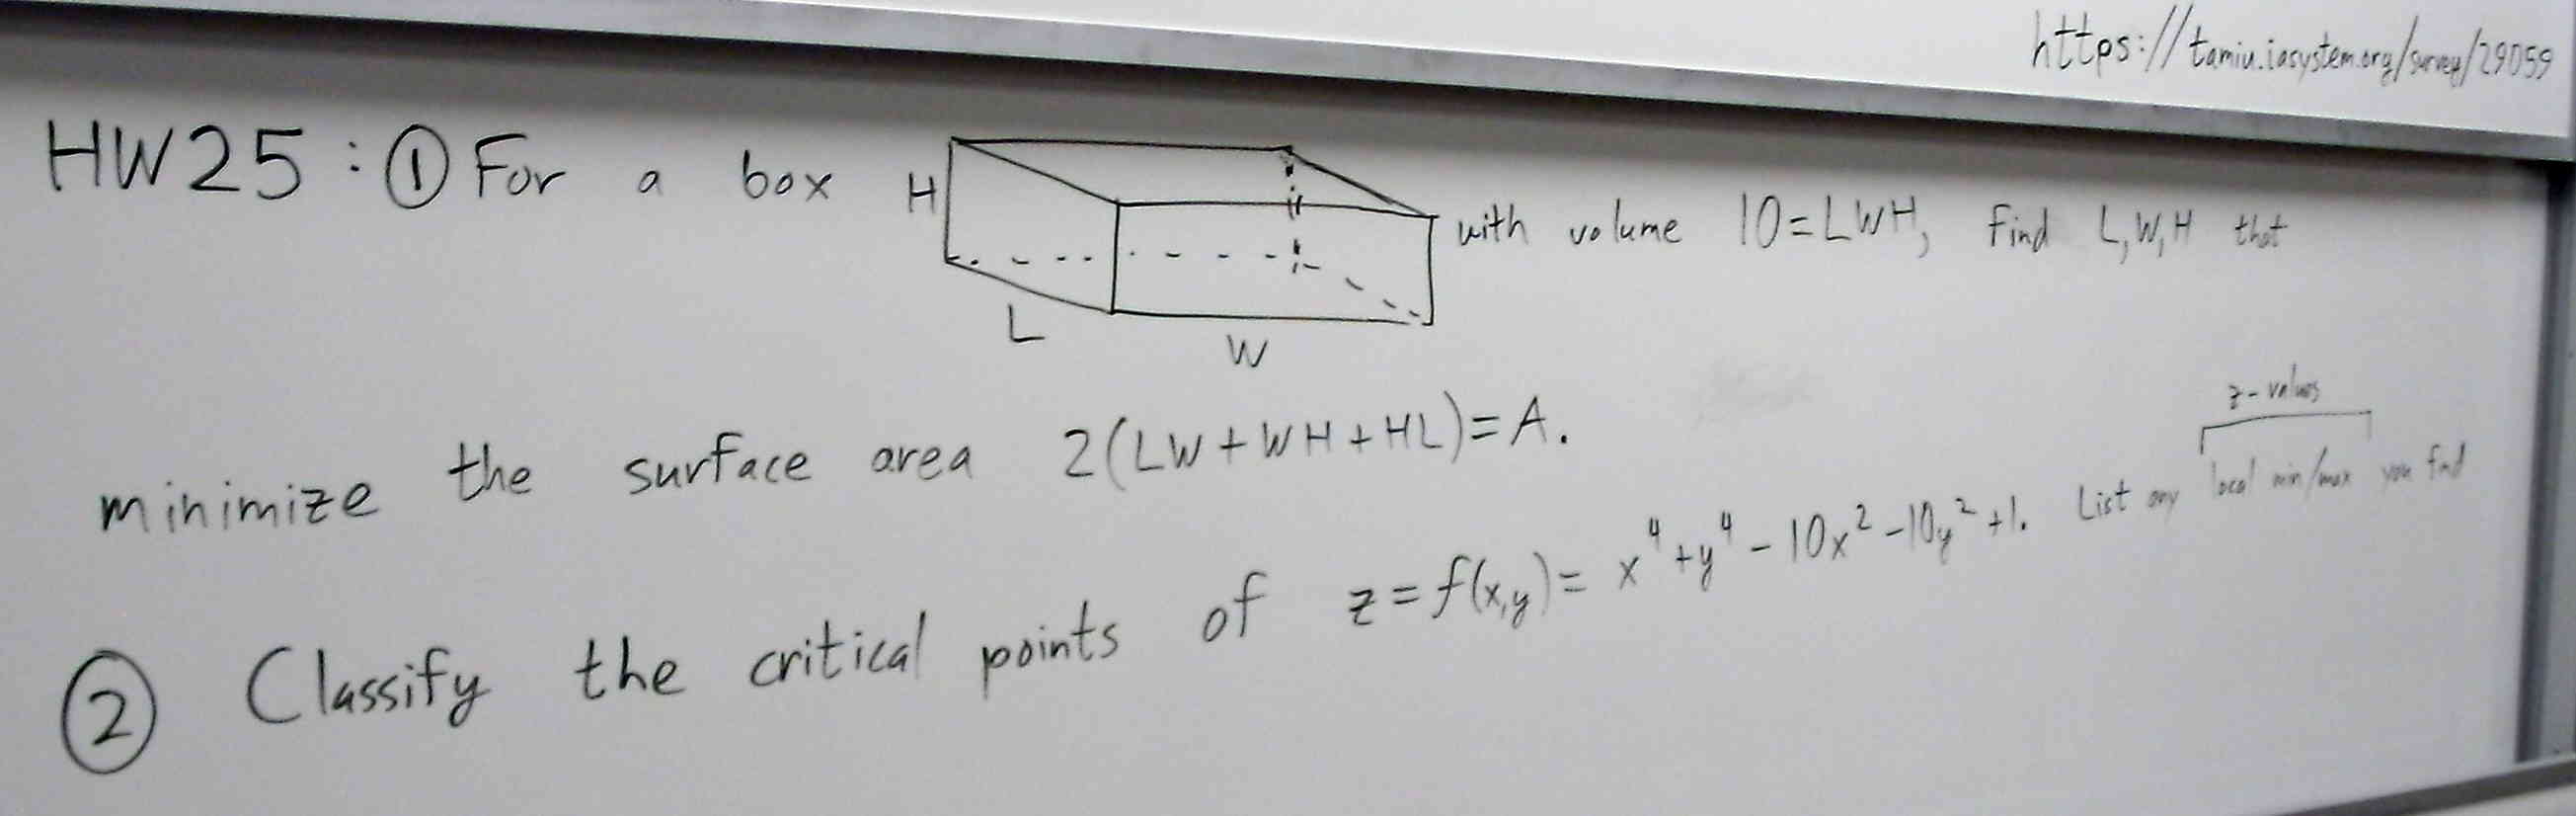 https://tamiu.iasystem.org/survey/29059
HW25: ① For a box H L W with volume 10=LWH, find L,W,H that
minimize the surface area 2(LW+WH+HL)=A.
z-values
② Classify the critical points of z=f(x,y)= x⁴+y⁴-10x²-10y²+1. List any local min/max you find